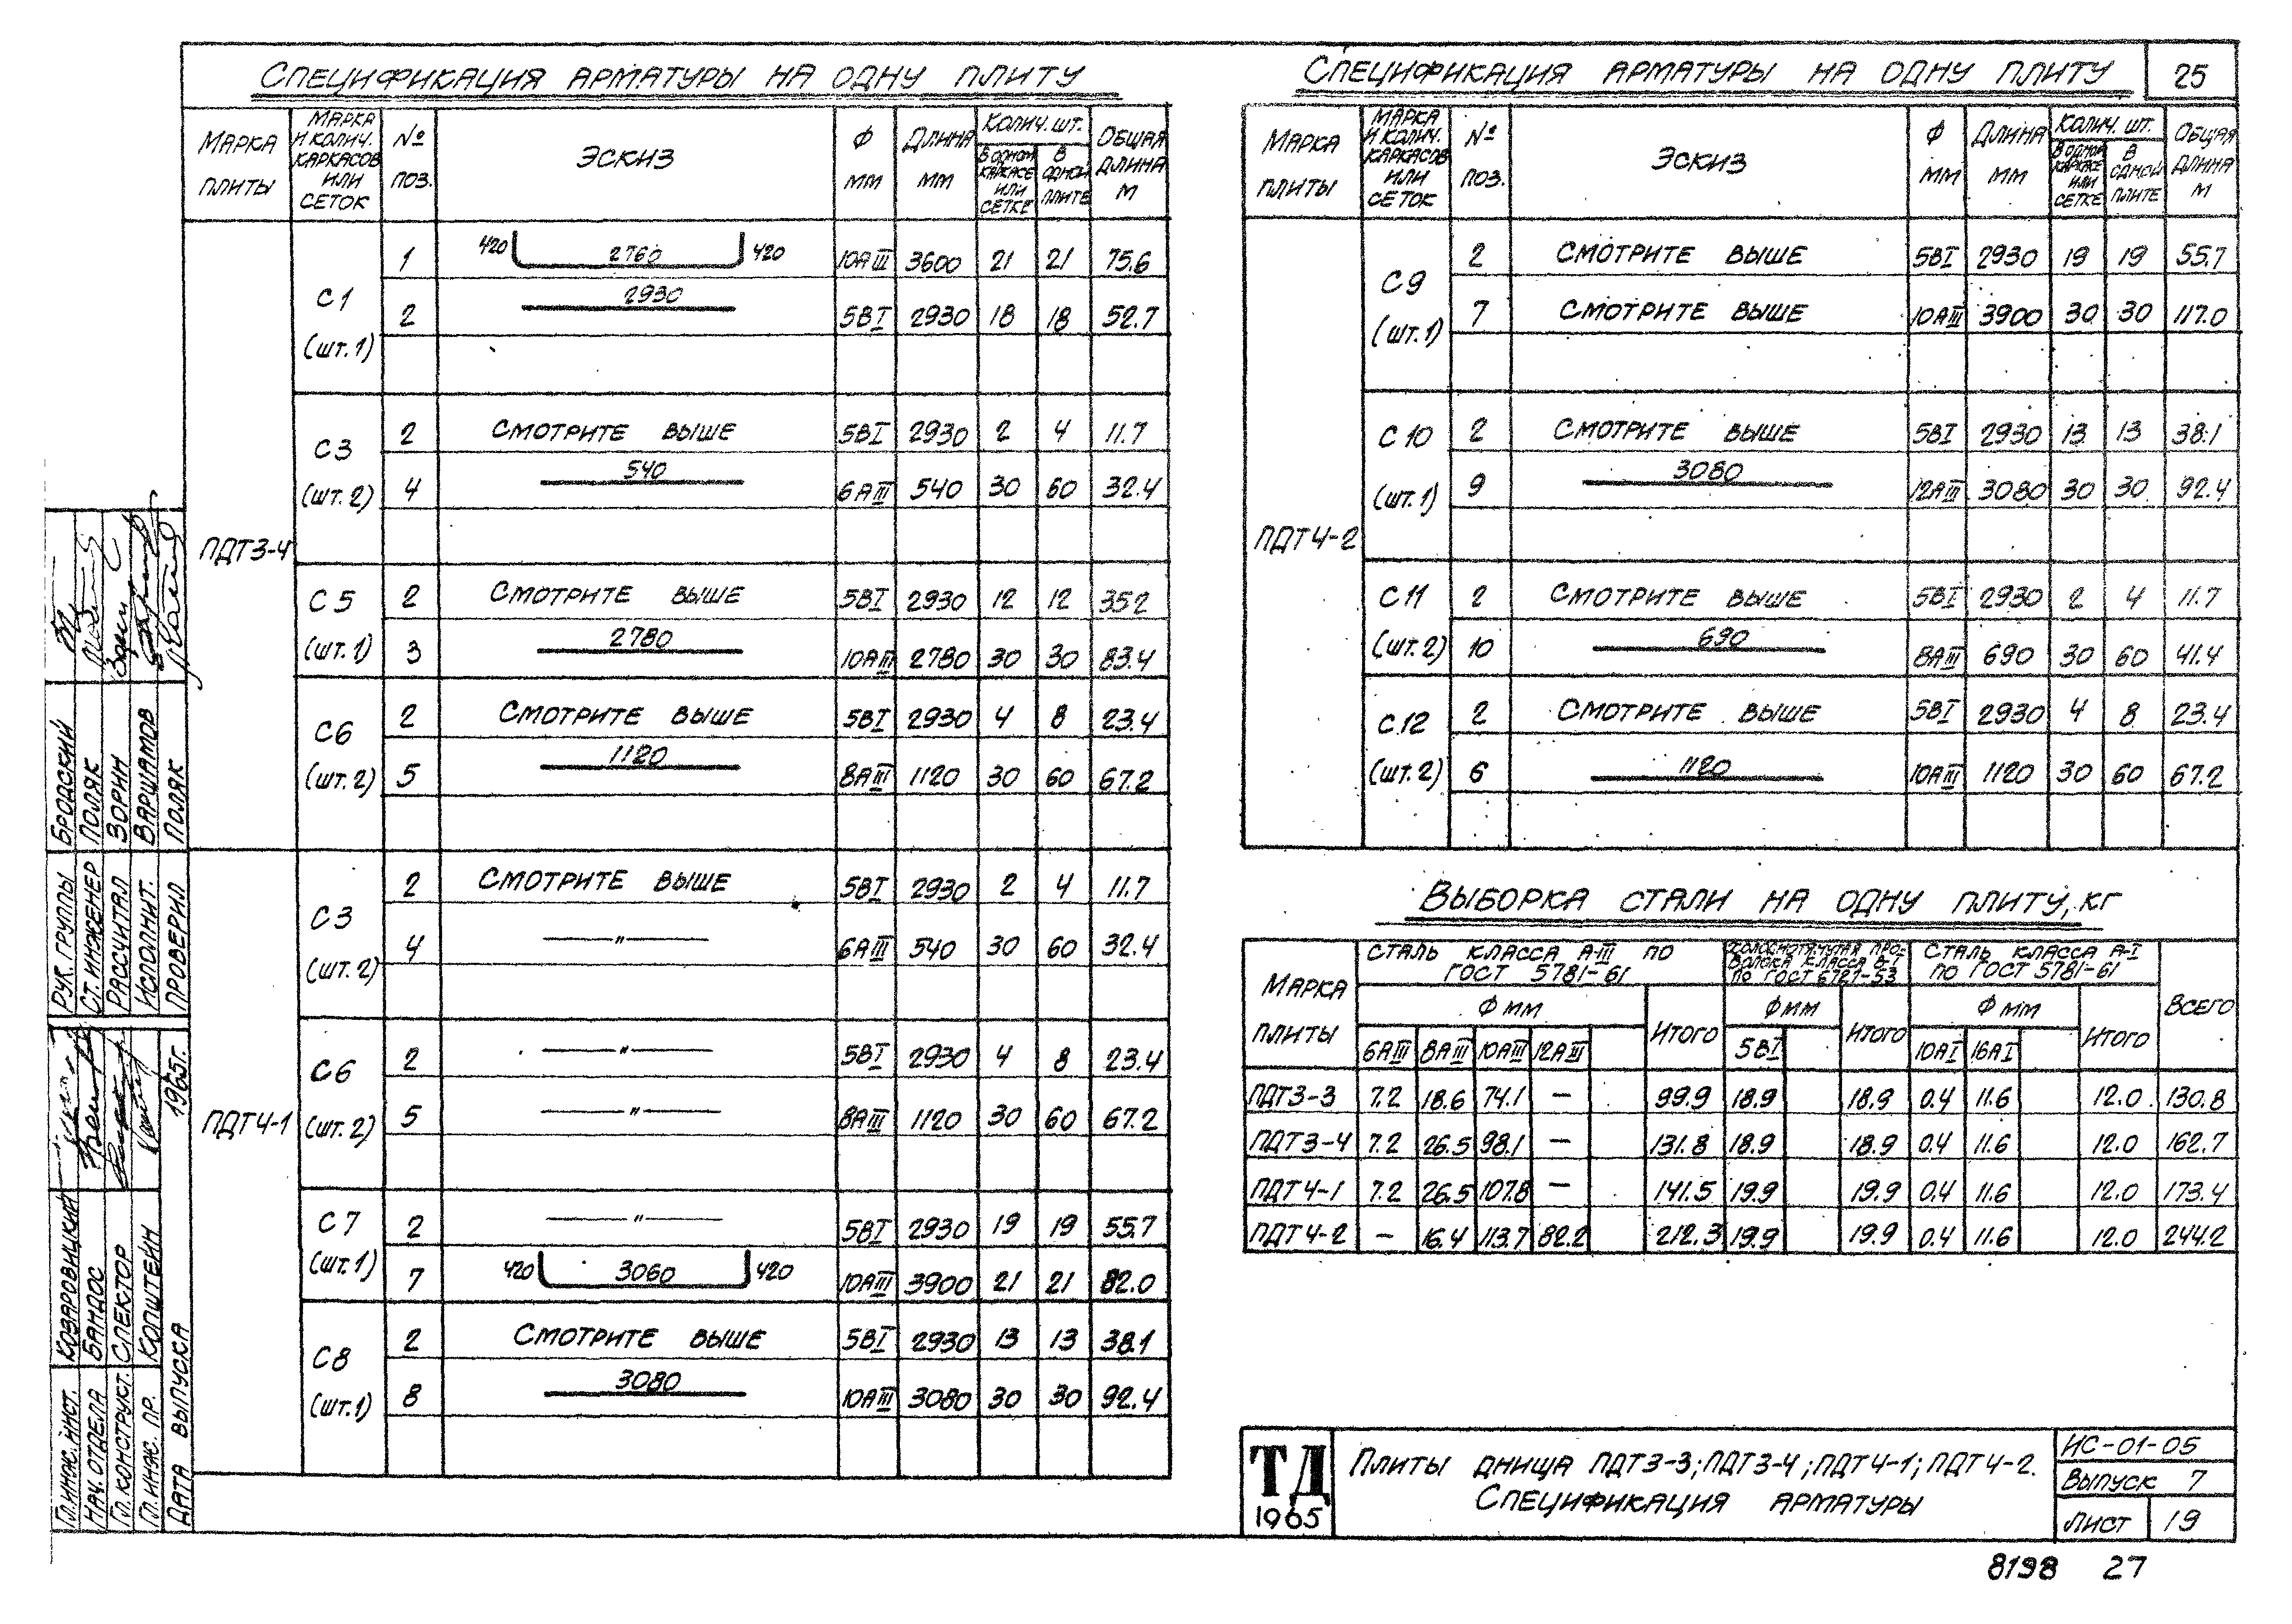 Спецификация арматуры на одну плиту
Марка плиты | Марка и колич. каркасов или сеток | № поз. | Эскиз | Ф мм | Длина мм | Колич. шт. | Общая длина м
В одном каркасе или сетке | В одной плите
ПДТ3-4
С1 (шт.1)
1 | 420 2760 420 | 10АIII | 3600 | 21 | 21 | 75.6
2 | 2930 | 5ВI | 2930 | 18 | 18 | 52.7
С3 (шт.2)
2 | Смотрите выше | 5ВI | 2930 | 2 | 4 | 11.7
4 | 540 | 6АIII | 540 | 30 | 60 | 32.4
С5 (шт.1)
2 | Смотрите выше | 5ВI | 2930 | 12 | 12 | 35.2
3 | 2780 | 10АIII | 2780 | 30 | 30 | 83.4
С6 (шт.2)
2 | Смотрите выше | 5ВI | 2930 | 4 | 8 | 23.4
5 | 1120 | 8АIII | 1120 | 30 | 60 | 67.2
ПДТ4-1
С3 (шт.2)
2 | Смотрите выше | 5ВI | 2930 | 2 | 4 | 11.7
4 | —"— | 6АIII | 540 | 30 | 60 | 32.4
С6 (шт.2)
2 | —"— | 5ВI | 2930 | 4 | 8 | 23.4
5 | —"— | 8АIII | 1120 | 30 | 60 | 67.2
С7 (шт.1)
2 | —"— | 5ВI | 2930 | 19 | 19 | 55.7
7 | 420 3060 420 | 10АIII | 3900 | 21 | 21 | 82.0
С8 (шт.1)
2 | Смотрите выше | 5ВI | 2930 | 13 | 13 | 38.1
8 | 3080 | 10АIII | 3080 | 30 | 30 | 92.4
Спецификация арматуры на одну плиту
25
Марка плиты | Марка и колич. каркасов или сеток | № поз. | Эскиз | Ф мм | Длина мм | Колич. шт. | Общая длина м
В одном каркасе или сетке | В одной плите
ПДТ4-2
С9 (шт.1)
2 | Смотрите выше | 5ВI | 2930 | 19 | 19 | 55.7
7 | Смотрите выше | 10АIII | 3900 | 30 | 30 | 117.0
С10 (шт.1)
2 | Смотрите выше | 5ВI | 2930 | 13 | 13 | 38.1
9 | 3080 | 12АIII | 3080 | 30 | 30 | 92.4
С11 (шт.2)
2 | Смотрите выше | 5ВI | 2930 | 2 | 4 | 11.7
10 | 690 | 8АIII | 690 | 30 | 60 | 41.4
С12 (шт.2)
2 | Смотрите выше | 5ВI | 2930 | 4 | 8 | 23.4
6 | 1120 | 10АIII | 1120 | 30 | 60 | 67.2
Выборка стали на одну плиту, кг
Марка плиты | Сталь класса А-III по ГОСТ 5781-61 | Холоднотянутая проволока класса В-I по ГОСТ 6727-53 | Сталь класса А-I по ГОСТ 5781-61 | Всего
Ф мм | Итого | Ф мм | Итого | Ф мм | Итого
6АIII | 8АIII | 10АIII | 12АIII | 5ВI | 10АI | 16АI
ПДТ3-3 | 7.2 | 18.6 | 74.1 | — | 99.9 | 18.9 | 18.9 | 0.4 | 11.6 | 12.0 | 130.8
ПДТ3-4 | 7.2 | 26.5 | 98.1 | — | 131.8 | 18.9 | 18.9 | 0.4 | 11.6 | 12.0 | 162.7
ПДТ4-1 | 7.2 | 26.5 | 107.8 | — | 141.5 | 19.9 | 19.9 | 0.4 | 11.6 | 12.0 | 173.4
ПДТ4-2 | — | 16.4 | 113.7 | 82.2 | 212.3 | 19.9 | 19.9 | 0.4 | 11.6 | 12.0 | 244.2
ТД
1965
Плиты днища ПДТ3-3; ПДТ3-4; ПДТ4-1; ПДТ4-2.
Спецификация арматуры
ИС-01-05
Выпуск 7
Лист 19
8198 27
Рук. группы Бродский
Ст. инженер Поляк
Рассчитал Зорин
Исполнит. Варшамов
Проверил Поляк
Гл. инж. инст. Козаровицкий
Нач. отдела Бандос
Гл. конструкт. Спектор
Гл. инж. пр. Копштейн
Дата выпуска 1965г.